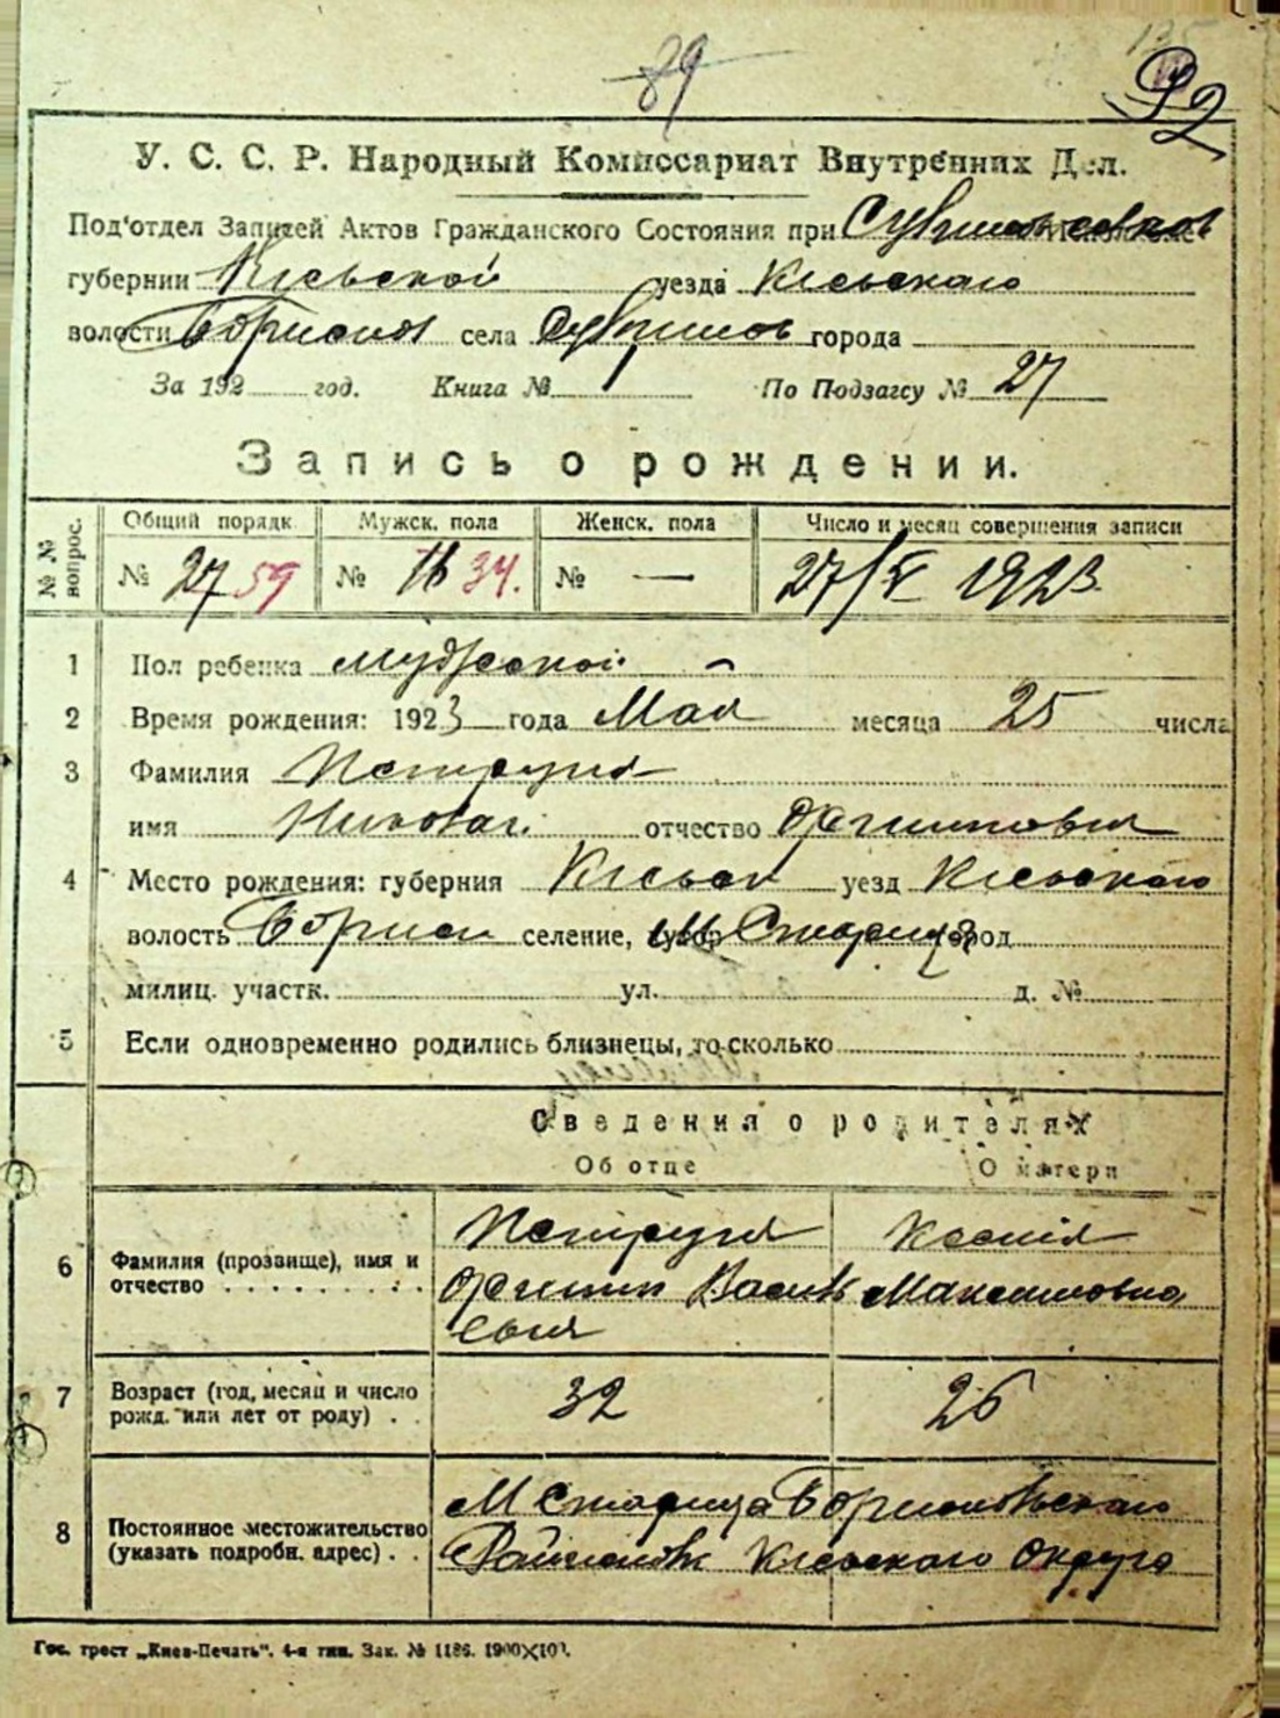 89
92
У. С. С. Р. Народный Комиссариат Внутренних Дел.
Под'отдел Записей Актов Гражданского Состояния при
губернии Кіевской уезда Кіевскаго
волости села города
За 192 год. Книга № 1 По Подзагсу № 27
Запись о рождении.
№ № вопрос. Общий порядк. Мужск. пола Женск. пола Число и месяц совершения записи
№ 27 59 № 16 34. № — 27/V 1923
1 Пол ребенка мужской
2 Время рождения: 1923 года Мая месяца 25 числа
3 Фамилия
имя Николай отчество
4 Место рождения: губерния Кіевск уезд Кіевскаго
волость Борисп селение, хутор М Старица город
милиц. участк. ул. д. №
5 Если одновременно родились близнецы, то сколько
Сведения о родителях
Об отце О матери
6 Фамилия (прозвище), имя и отчество
Ксенія Максимовна
7 Возраст (год, месяц и число рожд. или лет от роду) 32 26
8 Постоянное местожительство (указать подробн. адрес)
М Старица Бориспольскаго
Кіевскаго Округа
Гос. трест „Киев-Печать". 4-я тип. Зак. № 1186. 1900×100.